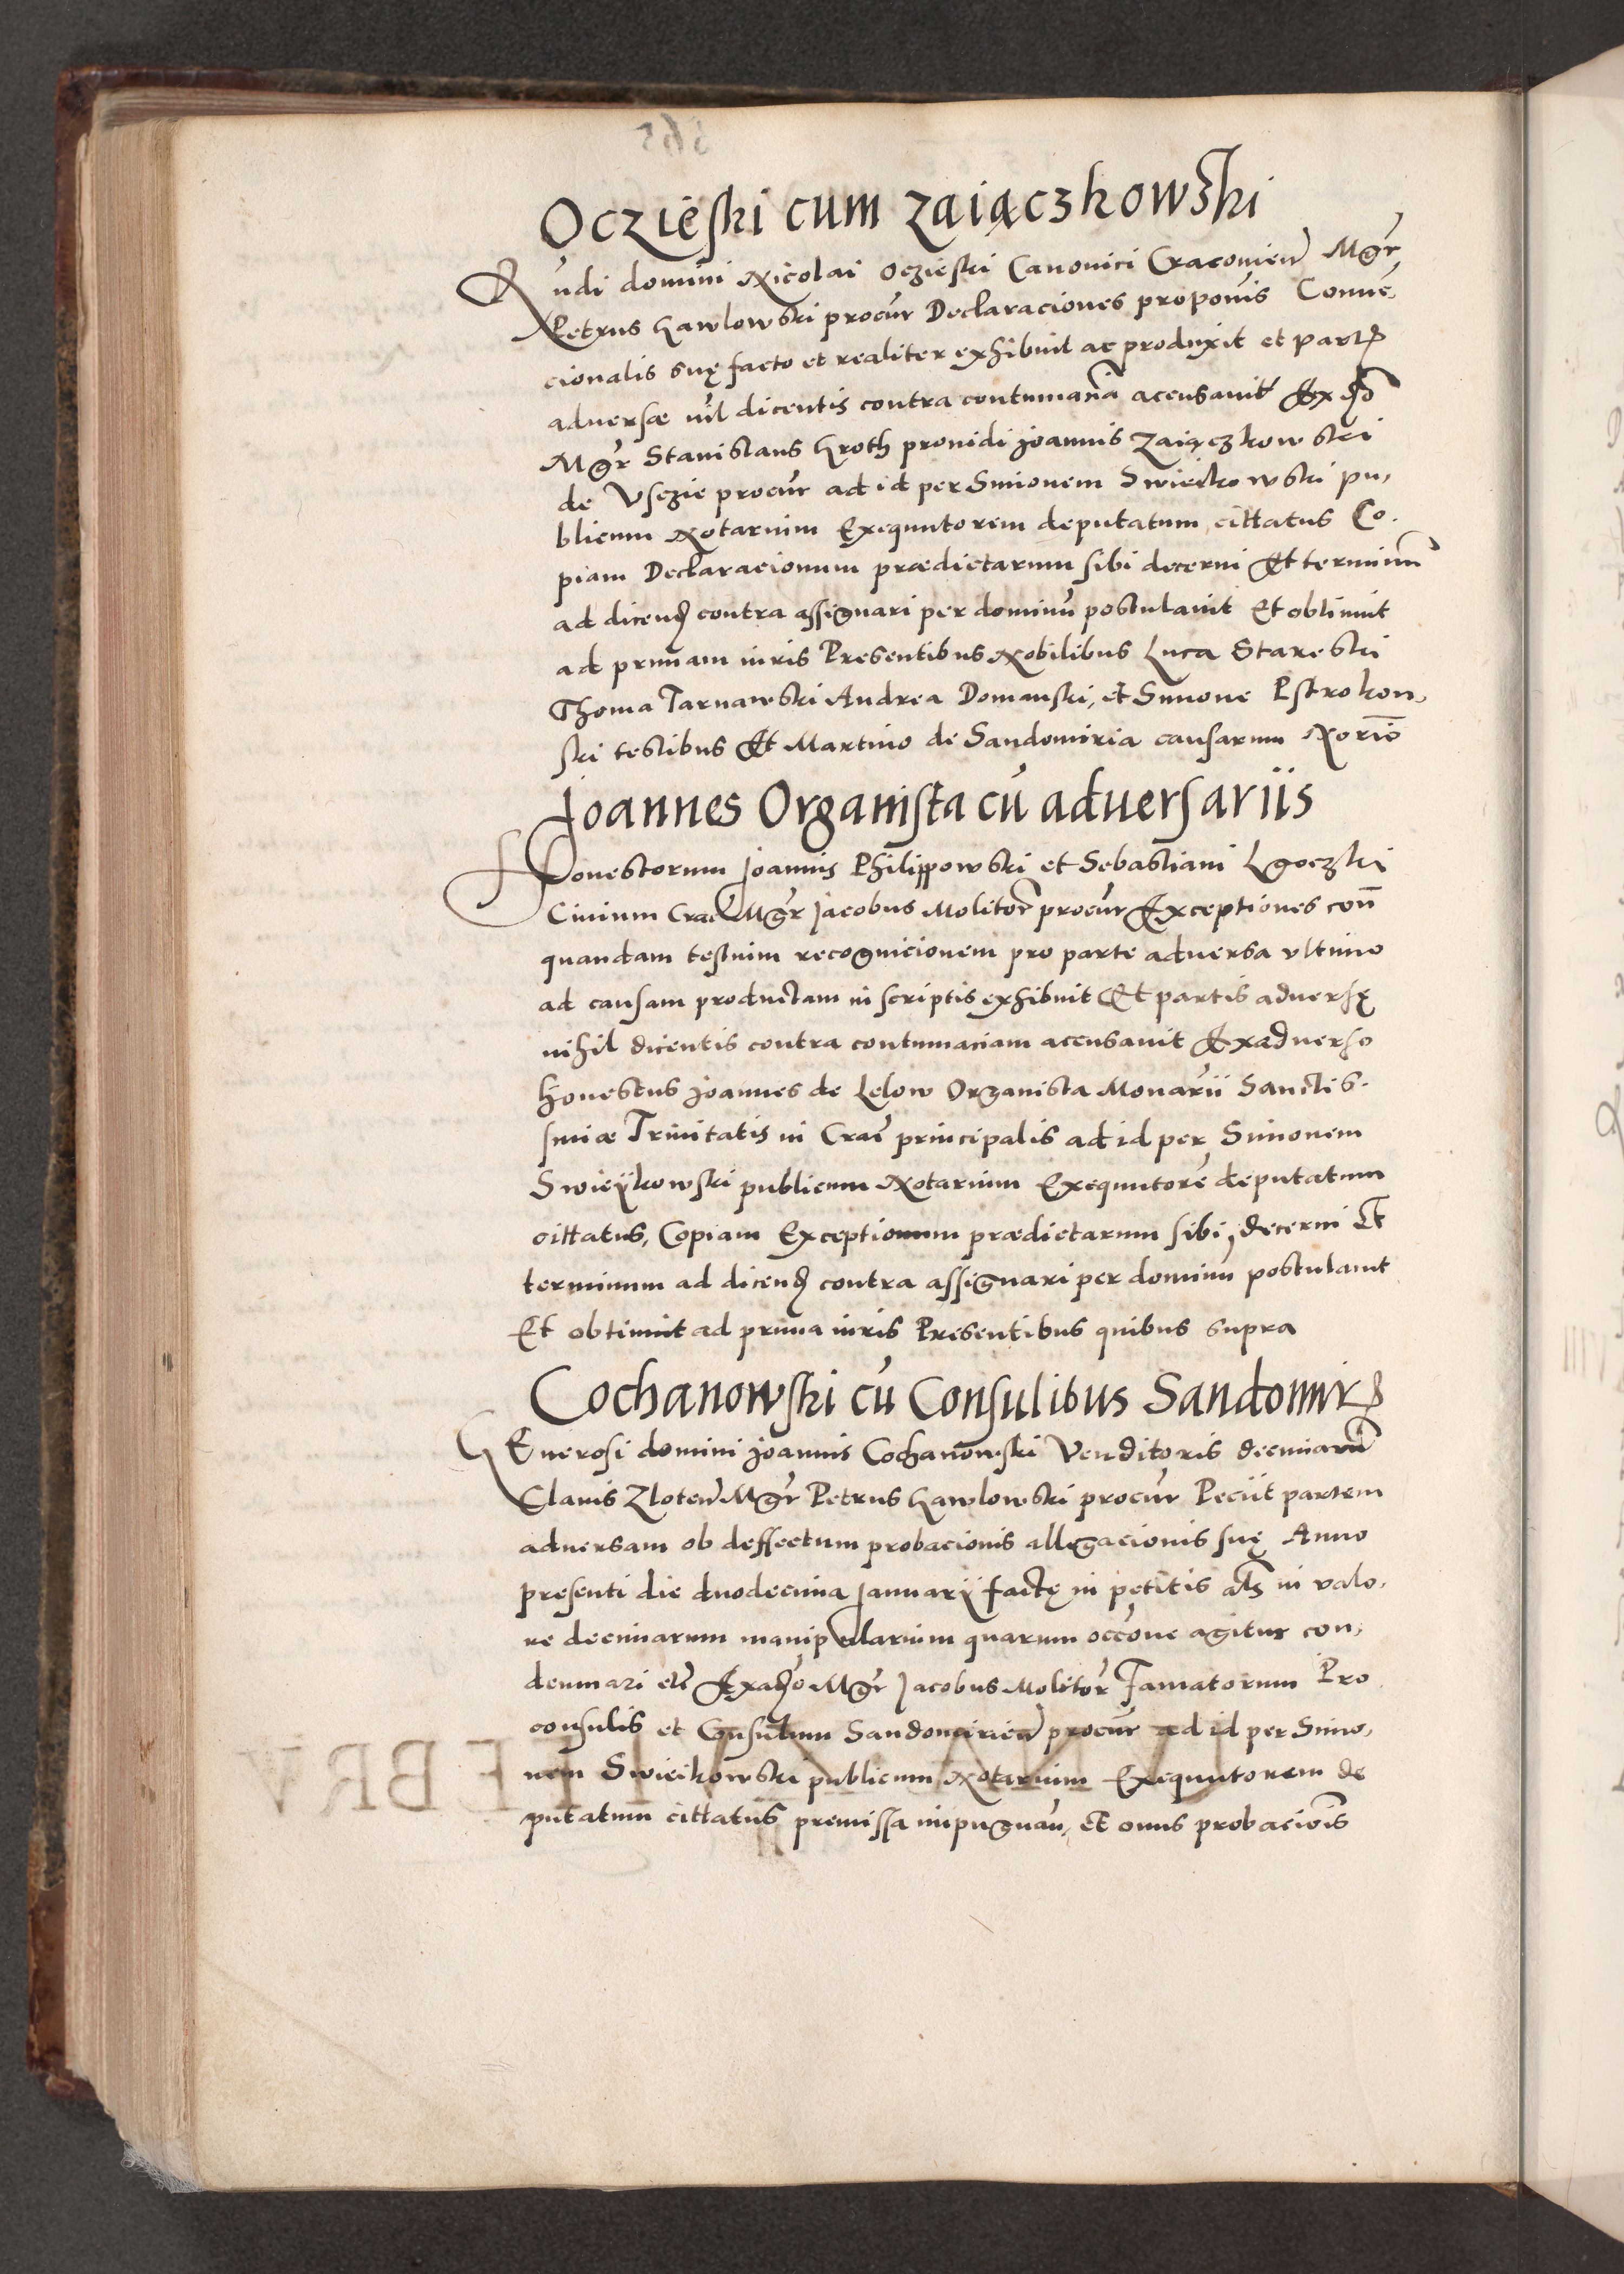 Oczieski cum Zaiączkowski
Rndi domini Nicolai Oczieski Canonici Cracovien Mgr
Petrus Gawlowski procur Declaraciones proponis Conve,
cionalis suę facto et realiter exhibuit ac produxit et partis
adversæ nil dicentis contra contumaciã acusavit Ex ado
Mgr Stanislaus Groth providi Joannis Zaiączkowski
de Vsczie procur ad id per Simonem Swieczkowski pu,
blicum Notarium Exequutorem deputatum cittatus Co.
piam Declaracionum prædictarum sibi decerni Et terminum
ad dicend contra assignari per dominũ postulavit Et obtinuit
ad primam iuris Presentibus Nobilibus Luca Stareski
Thoma Tarnawski Andrea Domanski, et Simone Pstrokon,
ski testibus Et Martino de Sandomiria causarum Norio
Joannes Organista cũ adversariis
Honestorum Joannis Philippowski et Sebastiani Lgoczki
Civium Crac Mgr Jacobus Molitor procur Exceptiones con
quandam testium recognicionem pro parte adversa ultimo
ad causam productam in scriptis exhibuit Et partis adversę
nihil dicentis contra contumaciam acusavit Exadverso
honestus Joannes de Lelow Organista Monarii Sanctis.
simæ Trinitatis in Crac principalis ad id per Simonem
Swieykowski publicum Notarium Exequutorẽ deputatum
cittatus, Copiam Exceptionum prædictarum sibi, decerni Et
terminum ad dicend contra assignari per dominũ postulavit
Et obtinuit ad prima iuris Presentibus quibus supra
Cochanowski cũ Consulibus Sandomir
GEnerosi domini Joannis Cochanowski Venditoris decimarũ
Clavis Zloten Mgr Petrus Gawlowski procur Peciit partem
adversam ob deffectum probacionis allegacionis suę Anno
presenti die duodecima Januarij factę in petitis als in valo,
re decimarum manipularium quarum occõne agitur con,
demnari etc Exado Mgr Jacobus Molitor Famatorum Pro
consulis et Consulum Sandomirien procur ad id per Simo,
nem Swieikowski publicum Notarium Exequutorem de
putatum cittatus premissa impugnan, et onus probacionis